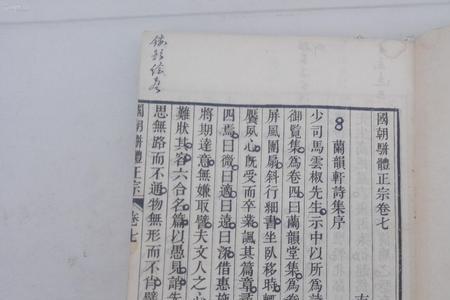 國朝駢體正宗卷七
蘭韻軒詩集序
少司馬雲椒先生示中以所為詩
御覽集為卷四曰蘭韻堂集為卷
屏風圍扇斜行細書坐臥移時輒
饜夙心既受而卒業諷其篇章尋
四焉曰微曰適曰遠曰深借惠施
將期達意無嫌取譬夫文人之心
難狀其容六合名篇以愚見誚先
思無路而不通物無形而不肖譬
國朝駢體正宗 卷七